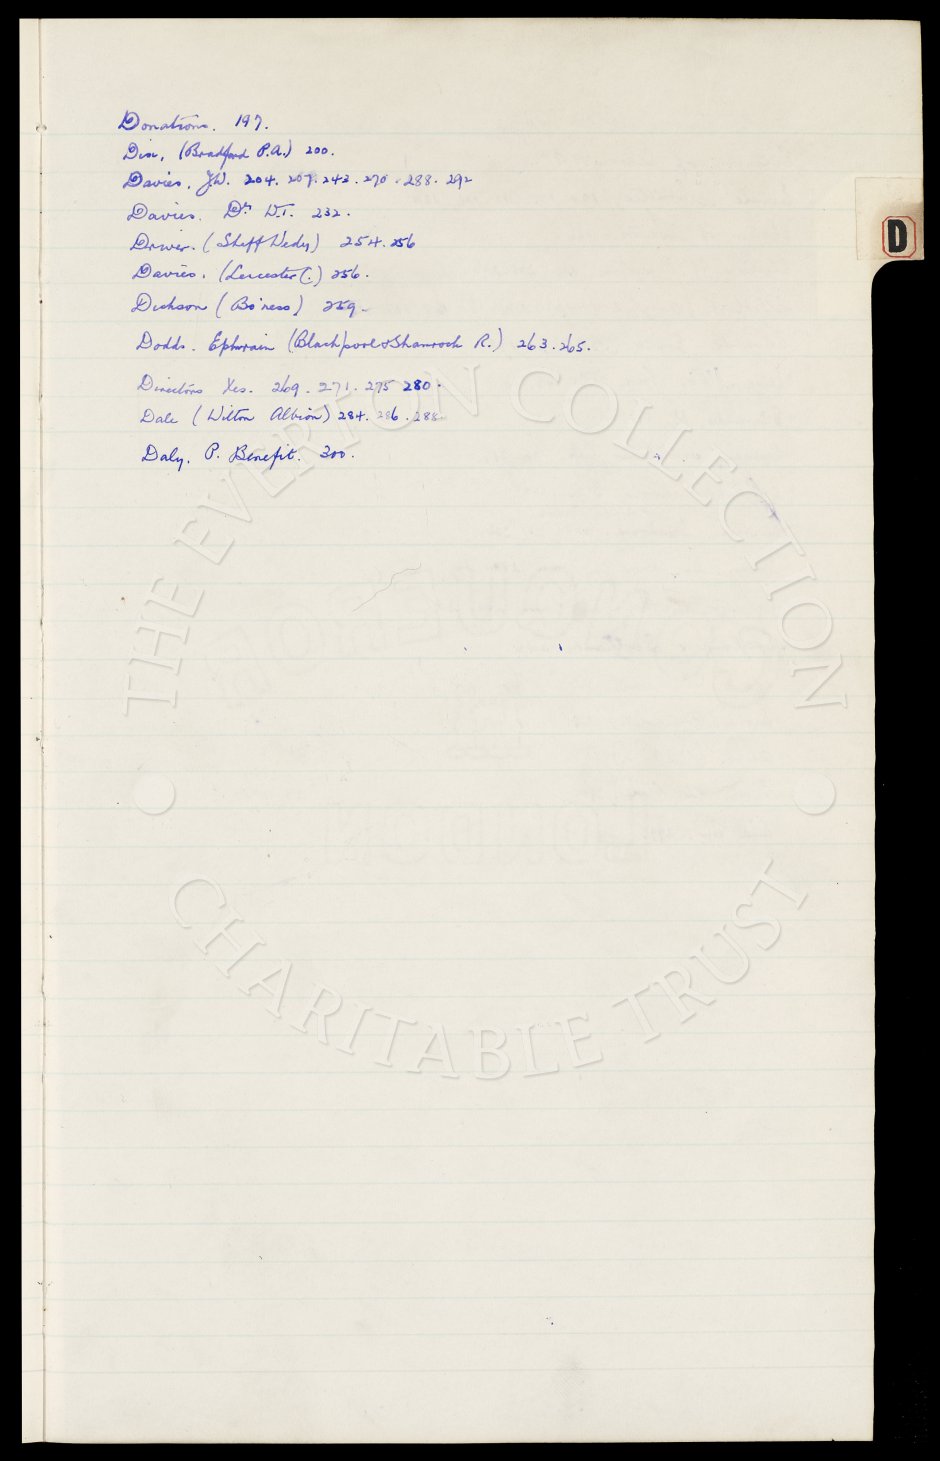 Donations. 197.
(Bradford P.A.) 200.
Davies, J.W. 204. 207. 242. 270. 288. 292
Davies. Dr W.T. 232.
Driver. (Sheff Wedy) 254. 256
Davies. (Leicester C.) 256.
Dickson (Bo'ness) 259.
Dodds. Ephraim (Blackpool & Shamrock R.) 263. 265.
Directors Xes. 269. 271. 275 280.
Dale (Witton Albion) 284. 286. 288.
Daly. P. Benefit. 300.
D
THE EVERTON COLLECTION
CHARITABLE TRUST